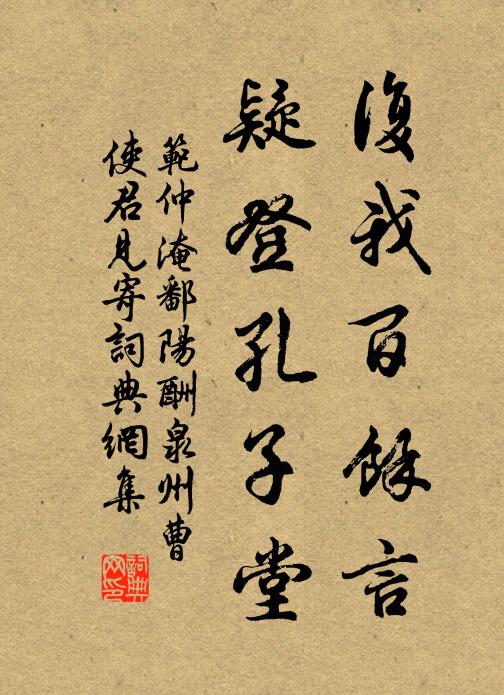 復我百餘言
疑登孔子堂
範仲淹鄱陽酬泉州曹
使君見寄詞典網集
詞典网印